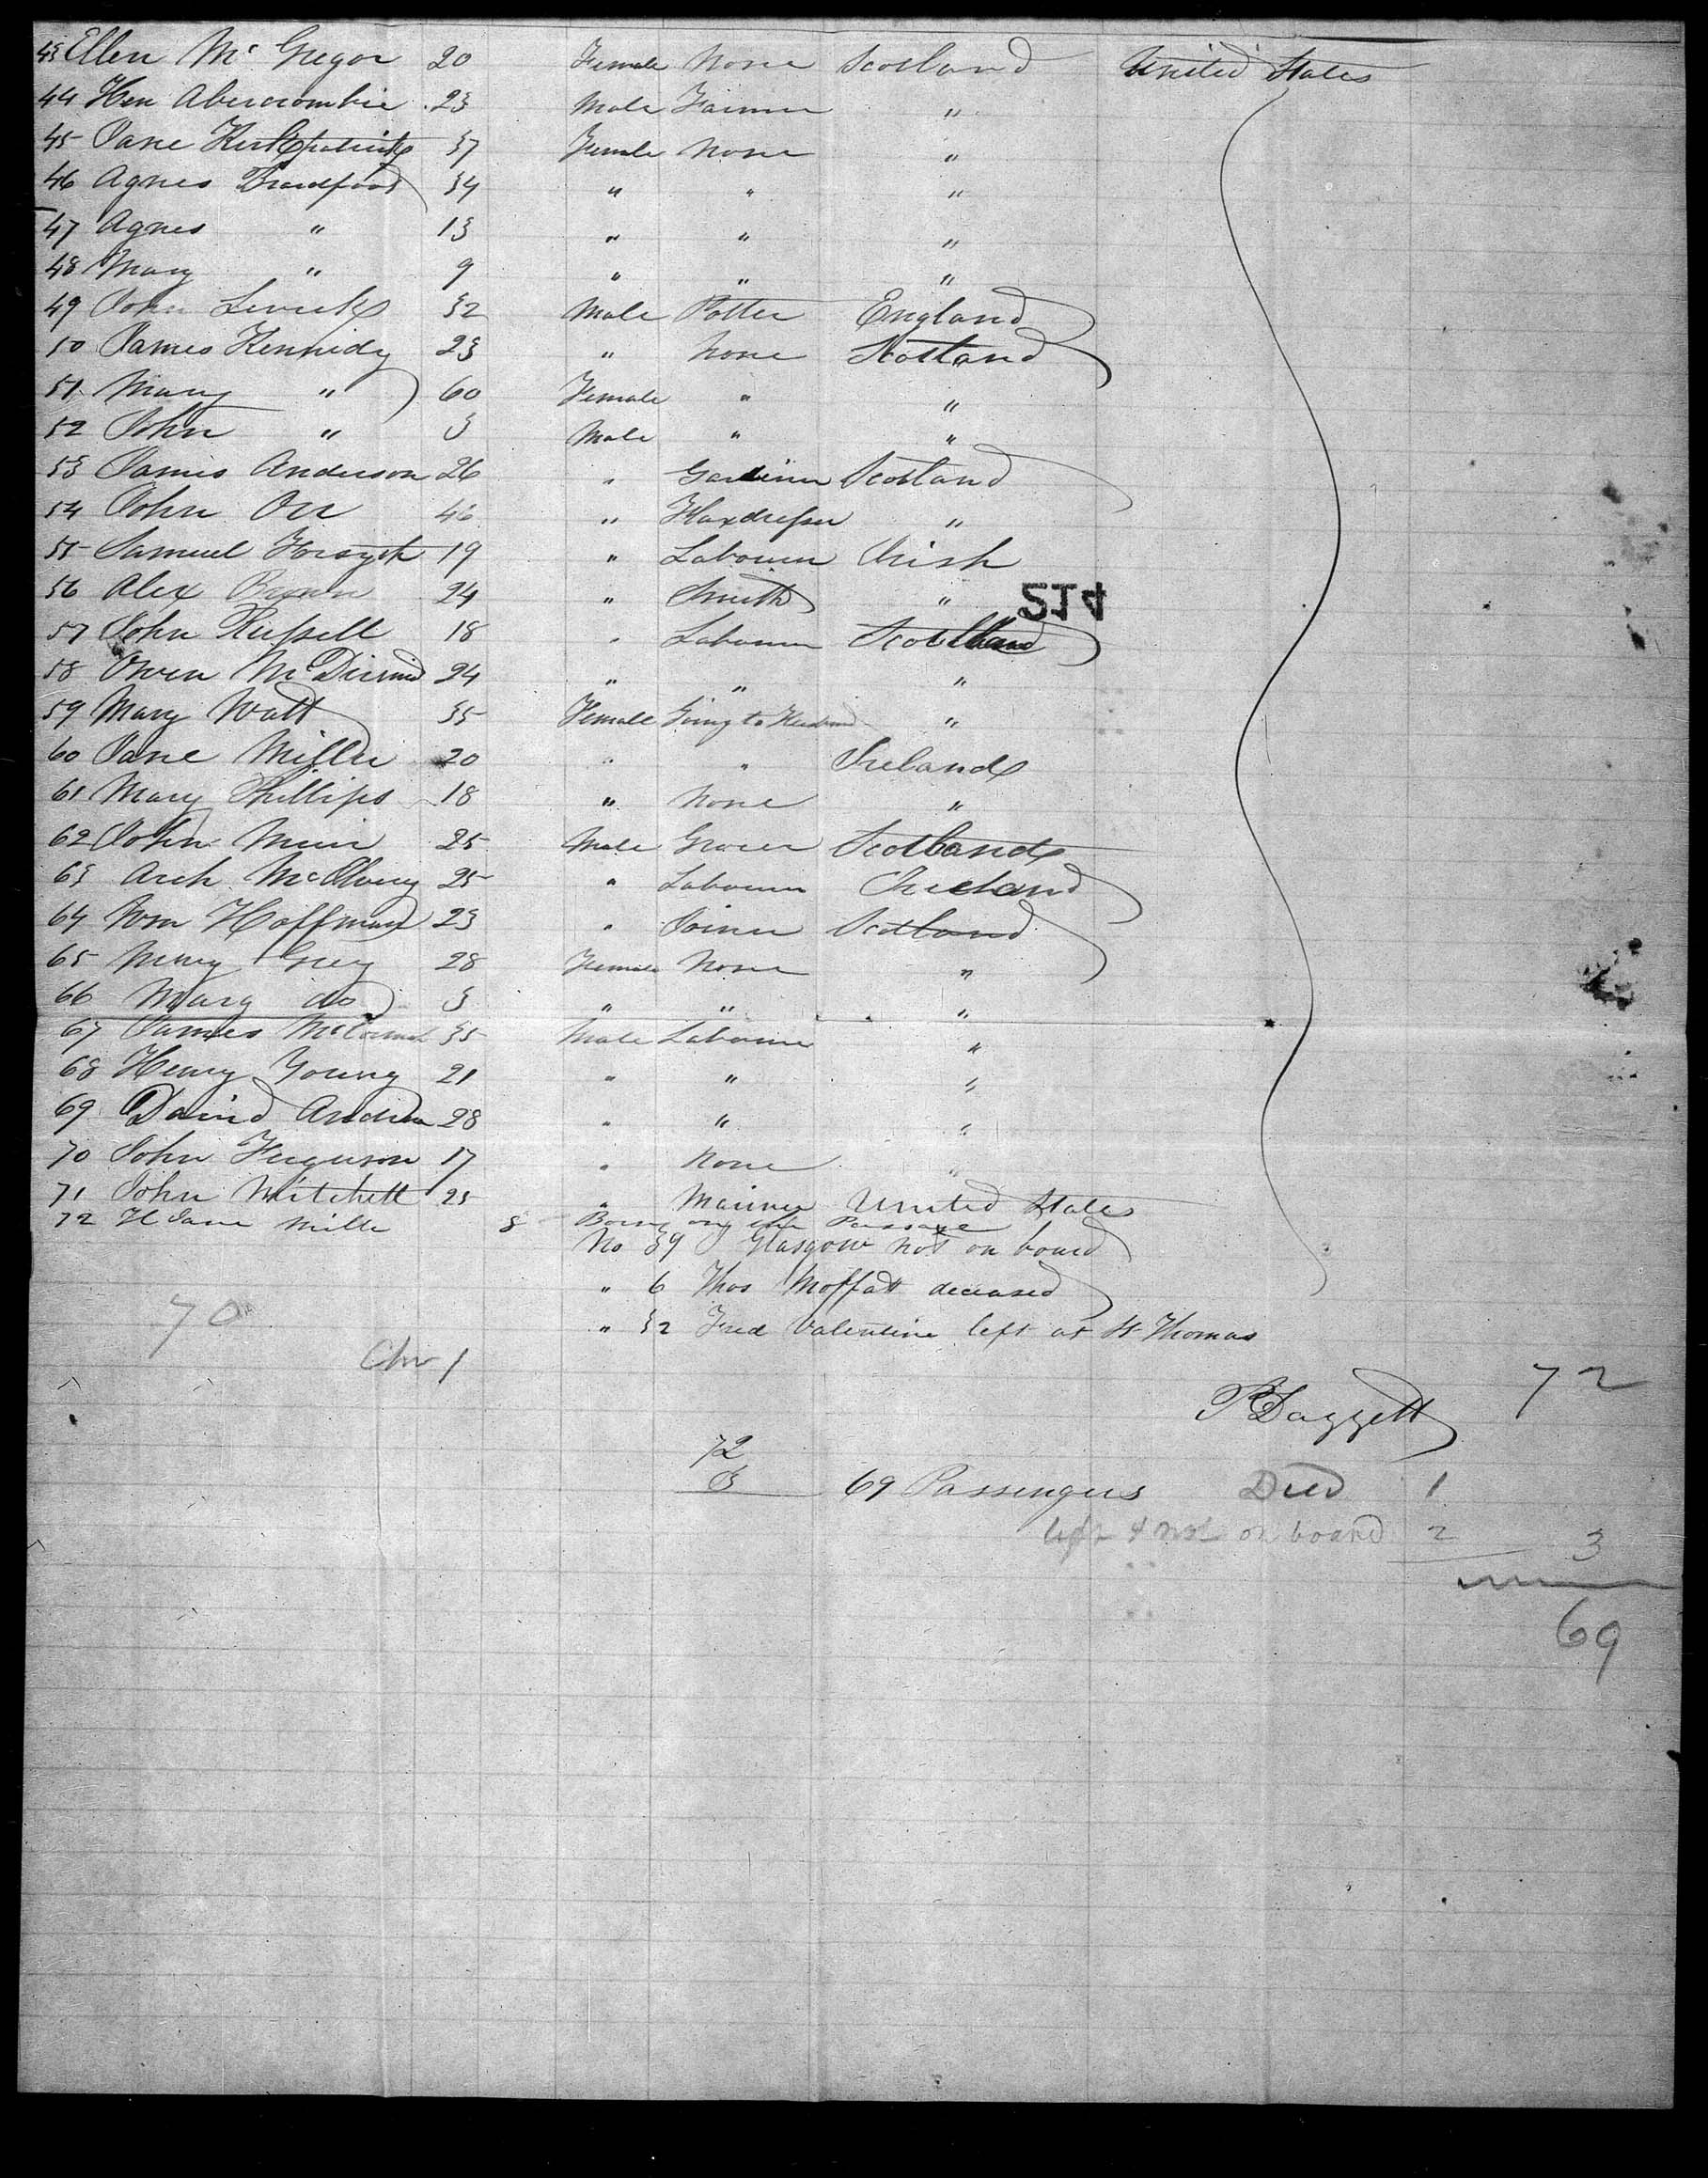 43 Ellen McGregor 20 Female None Scotland United States
44 Hen Abercrombie 23 Male Farmer "
45 Jane Kirkpatrick 37 Female None "
46 Agnes Bradfood 34 " " "
47 Agnes " 13 " " "
48 Mary " 9 " " "
49 John 32 Male Potter England
50 James Kennidy 23 " None Scotland
51 Mary " 60 Female " "
52 John " 3 Male " "
53 James Anderson 26 " Gardiner Scotland
54 John Orr 46 " Flaxdresser "
55 Samuel Forsyth 19 " Labourer Irish
56 Alex Brown 24 " Smith "
214
57 John Russell 18 " Labourer Scotland
58 Owen McDirmid 24 " " "
59 Mary Watt 35 Female Going to Husband "
60 Jane Miller 20 " " Ireland
61 Mary Phillips 18 " None "
62 John Muir 25 Male Grocer Scotland
63 Arch McElvery 25 " Labourer Ireland
64 Wm Hoffman 23 " Joiner Scotland
65 Mary Grey 28 Female None "
66 Mary do 3 " " "
67 James 35 Male Labourer "
68 Henry Young 21 " " "
69 David 28 " " "
70 John Ferguson 17 " None "
71 John Mitchell 25 " Mariner United States
72 H Jane Mille 8 Born on the Passage
No 39 Glasgow not on board
" 6 Thos Moffatt deceased
" 32 Fred Valentine left at St Thomas
70
1
P Daggett 72
72
3 69 Passengers Died 1
left & not on board 2 3
69